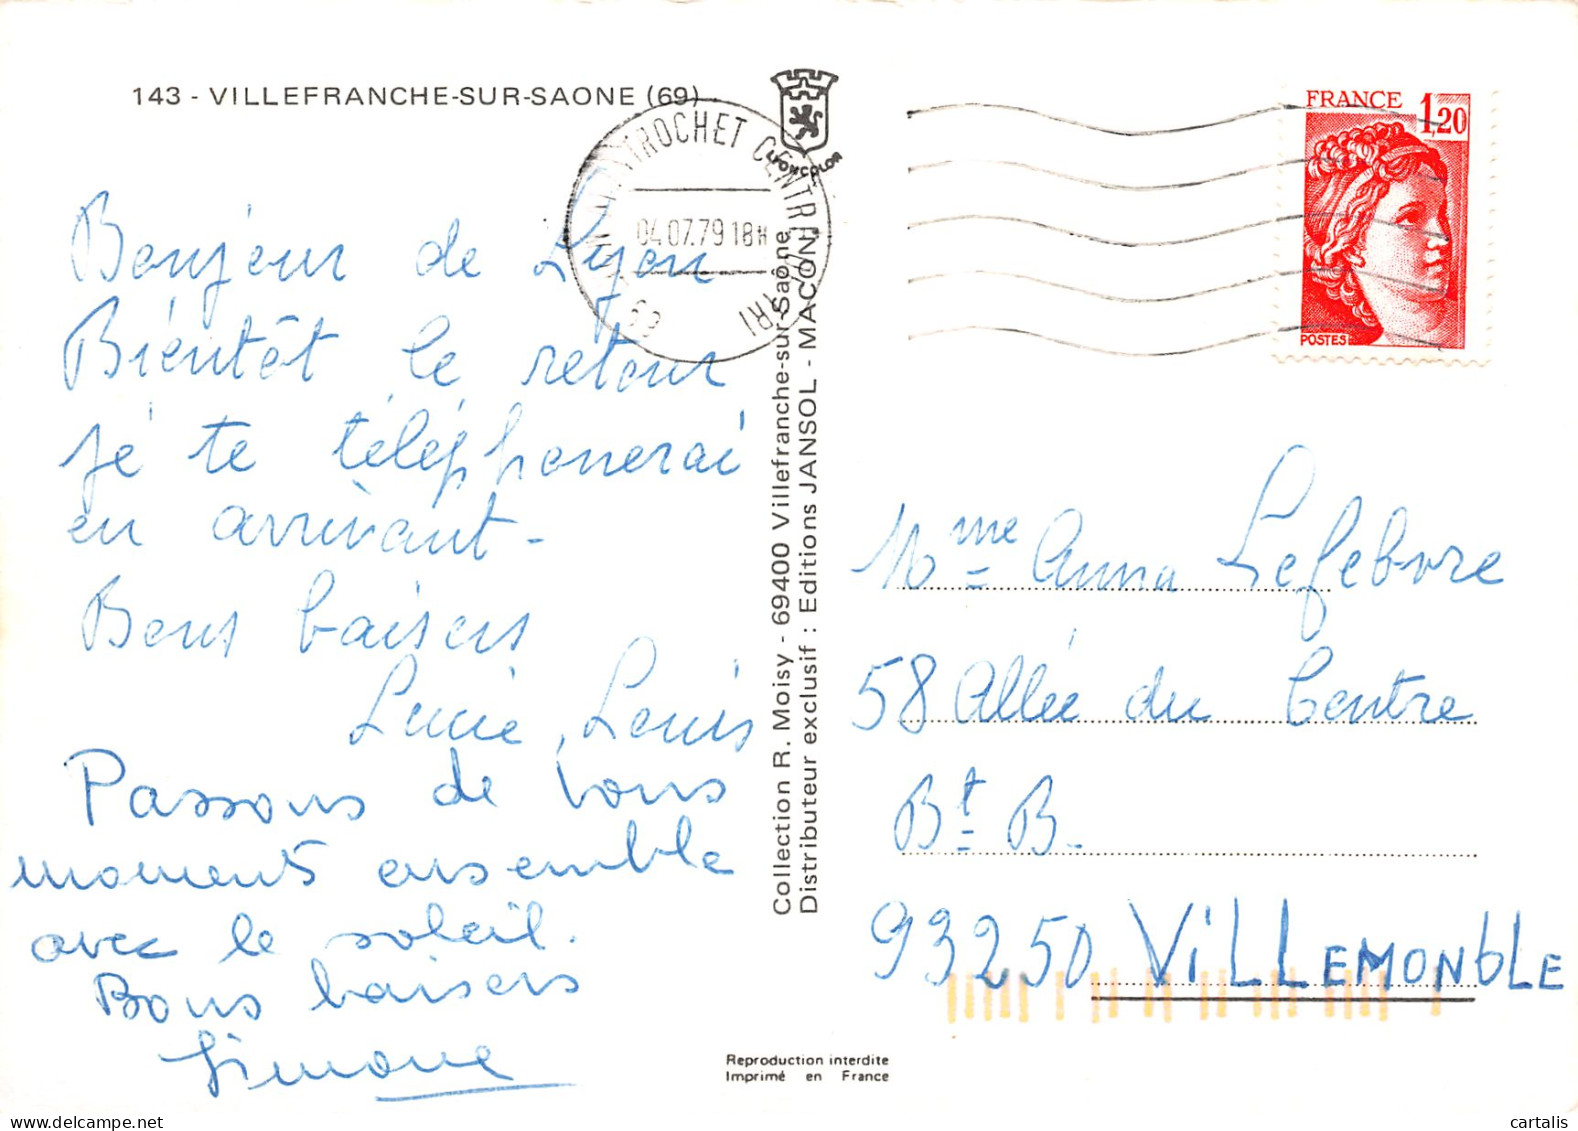 143 - VILLEFRANCHE-SUR-SAONE (69)
LYONCOLOR
MONTROCHET CENTR
04.07.79 18H
TRI
69
FRANCE 1,20
POSTES
Bonjour de Lyon
Bientôt le retour
je te téléphonerai
en arrivant -
Bons baisers
Lucie, Louis
Passons de bons
moments ensemble
avec le soleil.
Bons baisers
Simone
Collection R. Moisy - 69400 Villefranche-sur-Saône
Distributeur exclusif : Editions JANSOL - MACON
Mme Anna Lefebvre
58 Allée du Centre
Bt B.
93250 ViLLEMONbLE
Reproduction interdite
Imprimé en France
cartalis